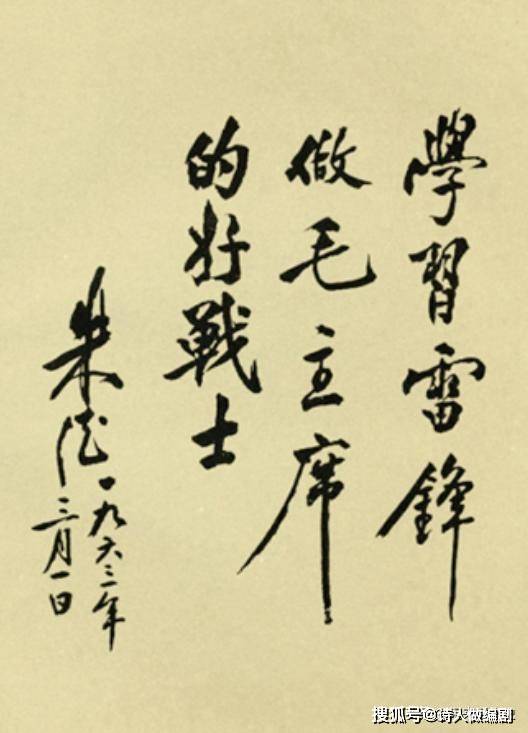 學習雷鋒
做毛主席
的好戰士
朱德
一九六三年
三月一日
搜狐号@诗人做编剧